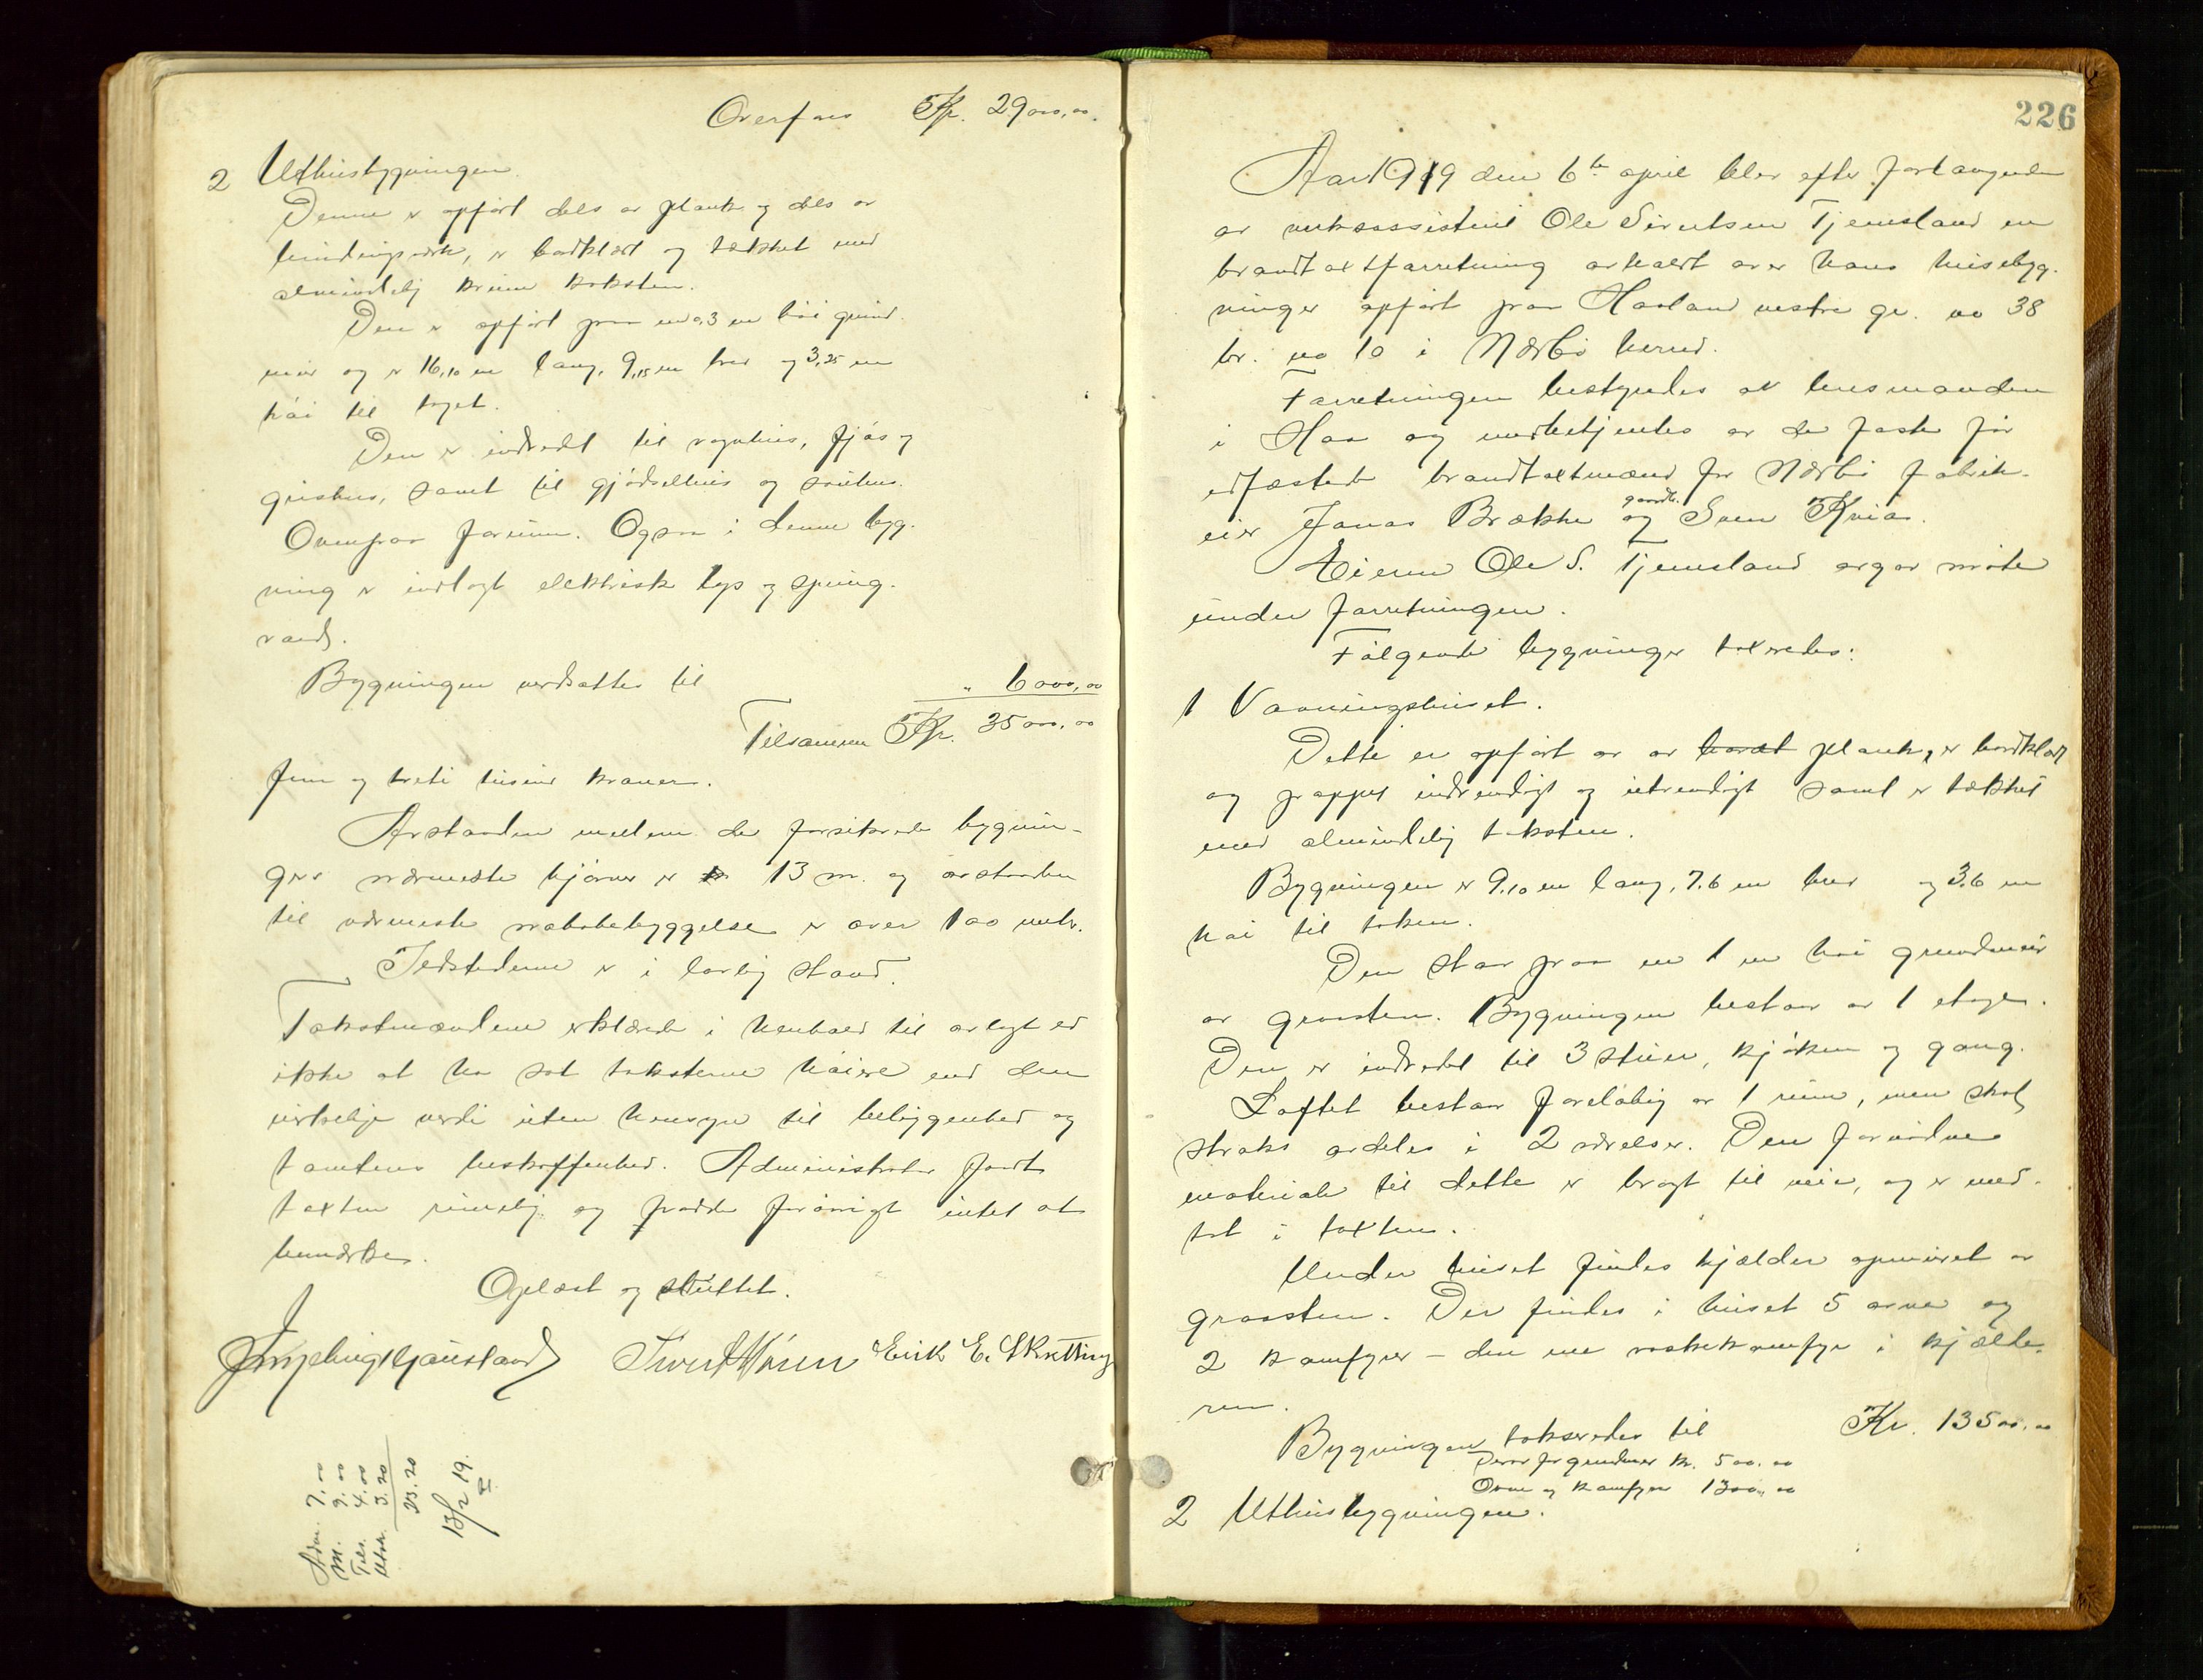 Overført Kr. 29000,00.
2 Uthusbygningen
Denne er opført dels av plank og dels av
bindingsverk, er bordklædt og tækket med
almindelig krum taksten.
Den er opført paa en 0,3 m høi grund
mur og er 16,10 m lang, 9,15 m bred og 3,25 m
høi til taget.
Den er indredt til vognhus, fjøs og
grishus, samt til gjødselhus og
Ovenpaa forrum. Ogsaa i denne byg-
ning er indlagt elektrisk lys og spring-
vand.
Bygningen verdsattes til " 6000,00
Tilsammen Kr. 35000,00
fem og treti tusind kroner.
Avstanden mellem de forsikrede bygnin-
gers nærmeste hjørner er 13 m. og avstanden
til nærmeste nabobebyggelse er over 100 metr.
Ildstederne er i lovlig stand.
Takstmændene erklærte i henhold til avlagt ed
ikke at ha sat taksterne høiere end den
virkelige verdi uten hensyn til beliggenhed og
tomtens beskaffenhed. Administrator fandt
taxten rimelig og hadde forøvrigt intet at
bemærke.
Oplæst og sluttet.
Erik E. Skretting
Adm. 7.00
M. 9.00
Tils. 4.00
Utsk. 3.20
23.20
13/2 19.
226
Aar 1919 den 6te april blev efter forlangende
av Ole Sivertsen Tjemsland en
brandtaxtforretning avholdt over hans husebyg-
ninger opført paa Haaland vestre gr. no 38
br. no 10 i Nærbø herred.
Forretningen bestyredes av lensmanden
i Haa og medbetjentes av de faste før
edfæstede brandtaxtmænd for Nærbø fabrik-
eier Jonas Brække og gaardb. Sven Kvia.
Eieren Ole S. Tjemsland avgav møte
under forretningen.
Følgende bygninger taxeredes:
1 Vaaningshuset.
Dette er opført av av plank, er bordklædt
og pappet indvendigt og utvendigt samt er tækket
med almindelig taksten.
Bygningen er 9,10 m lang, 7.6 m bred og 3.6 m
høi til taken.
Den staar paa en 1 m høi grundmur
av graasten. Bygningen bestaar av 1 etage.
Den er indredet til 3 stuer, kjøken og gang.
Loftet bestaar foreløbig av 1 rum, men skal
straks avdeles i 2 værelser. Den fornødne
materiale til dette er bragt til veie, og er med-
tat i taxten.
Under huset findes kjælder opmuret av
graasten. Der findes i huset 5 ovner og
2 komfyrer – den ene vaskekomfyr i kjælde-
ren.
Bygningen takseredes til Kr. 13500.00
Derav for grundmur kr. 500.00
Ovne og komfyrer 1300,00
2 Uthusbygningen.